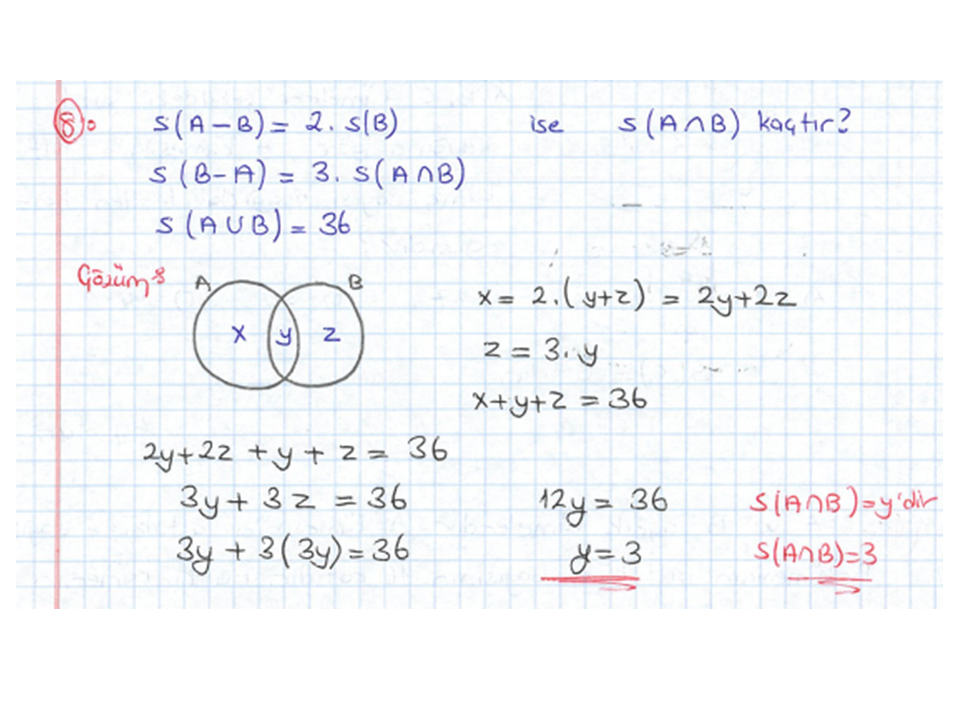 8. s(A-B) = 2. s(B) ise s(A∩B) kaçtır?
s(B-A) = 3. s(A∩B)
s(A∪B) = 36
Çözüm:
A B
x y z
x = 2.(y+z) = 2y+2z
z = 3.y
x+y+z = 36
2y+2z +y+ z = 36
3y+ 3z = 36
3y + 3(3y) = 36
12y = 36
y = 3
s(A∩B) = y'dir
s(A∩B)=3